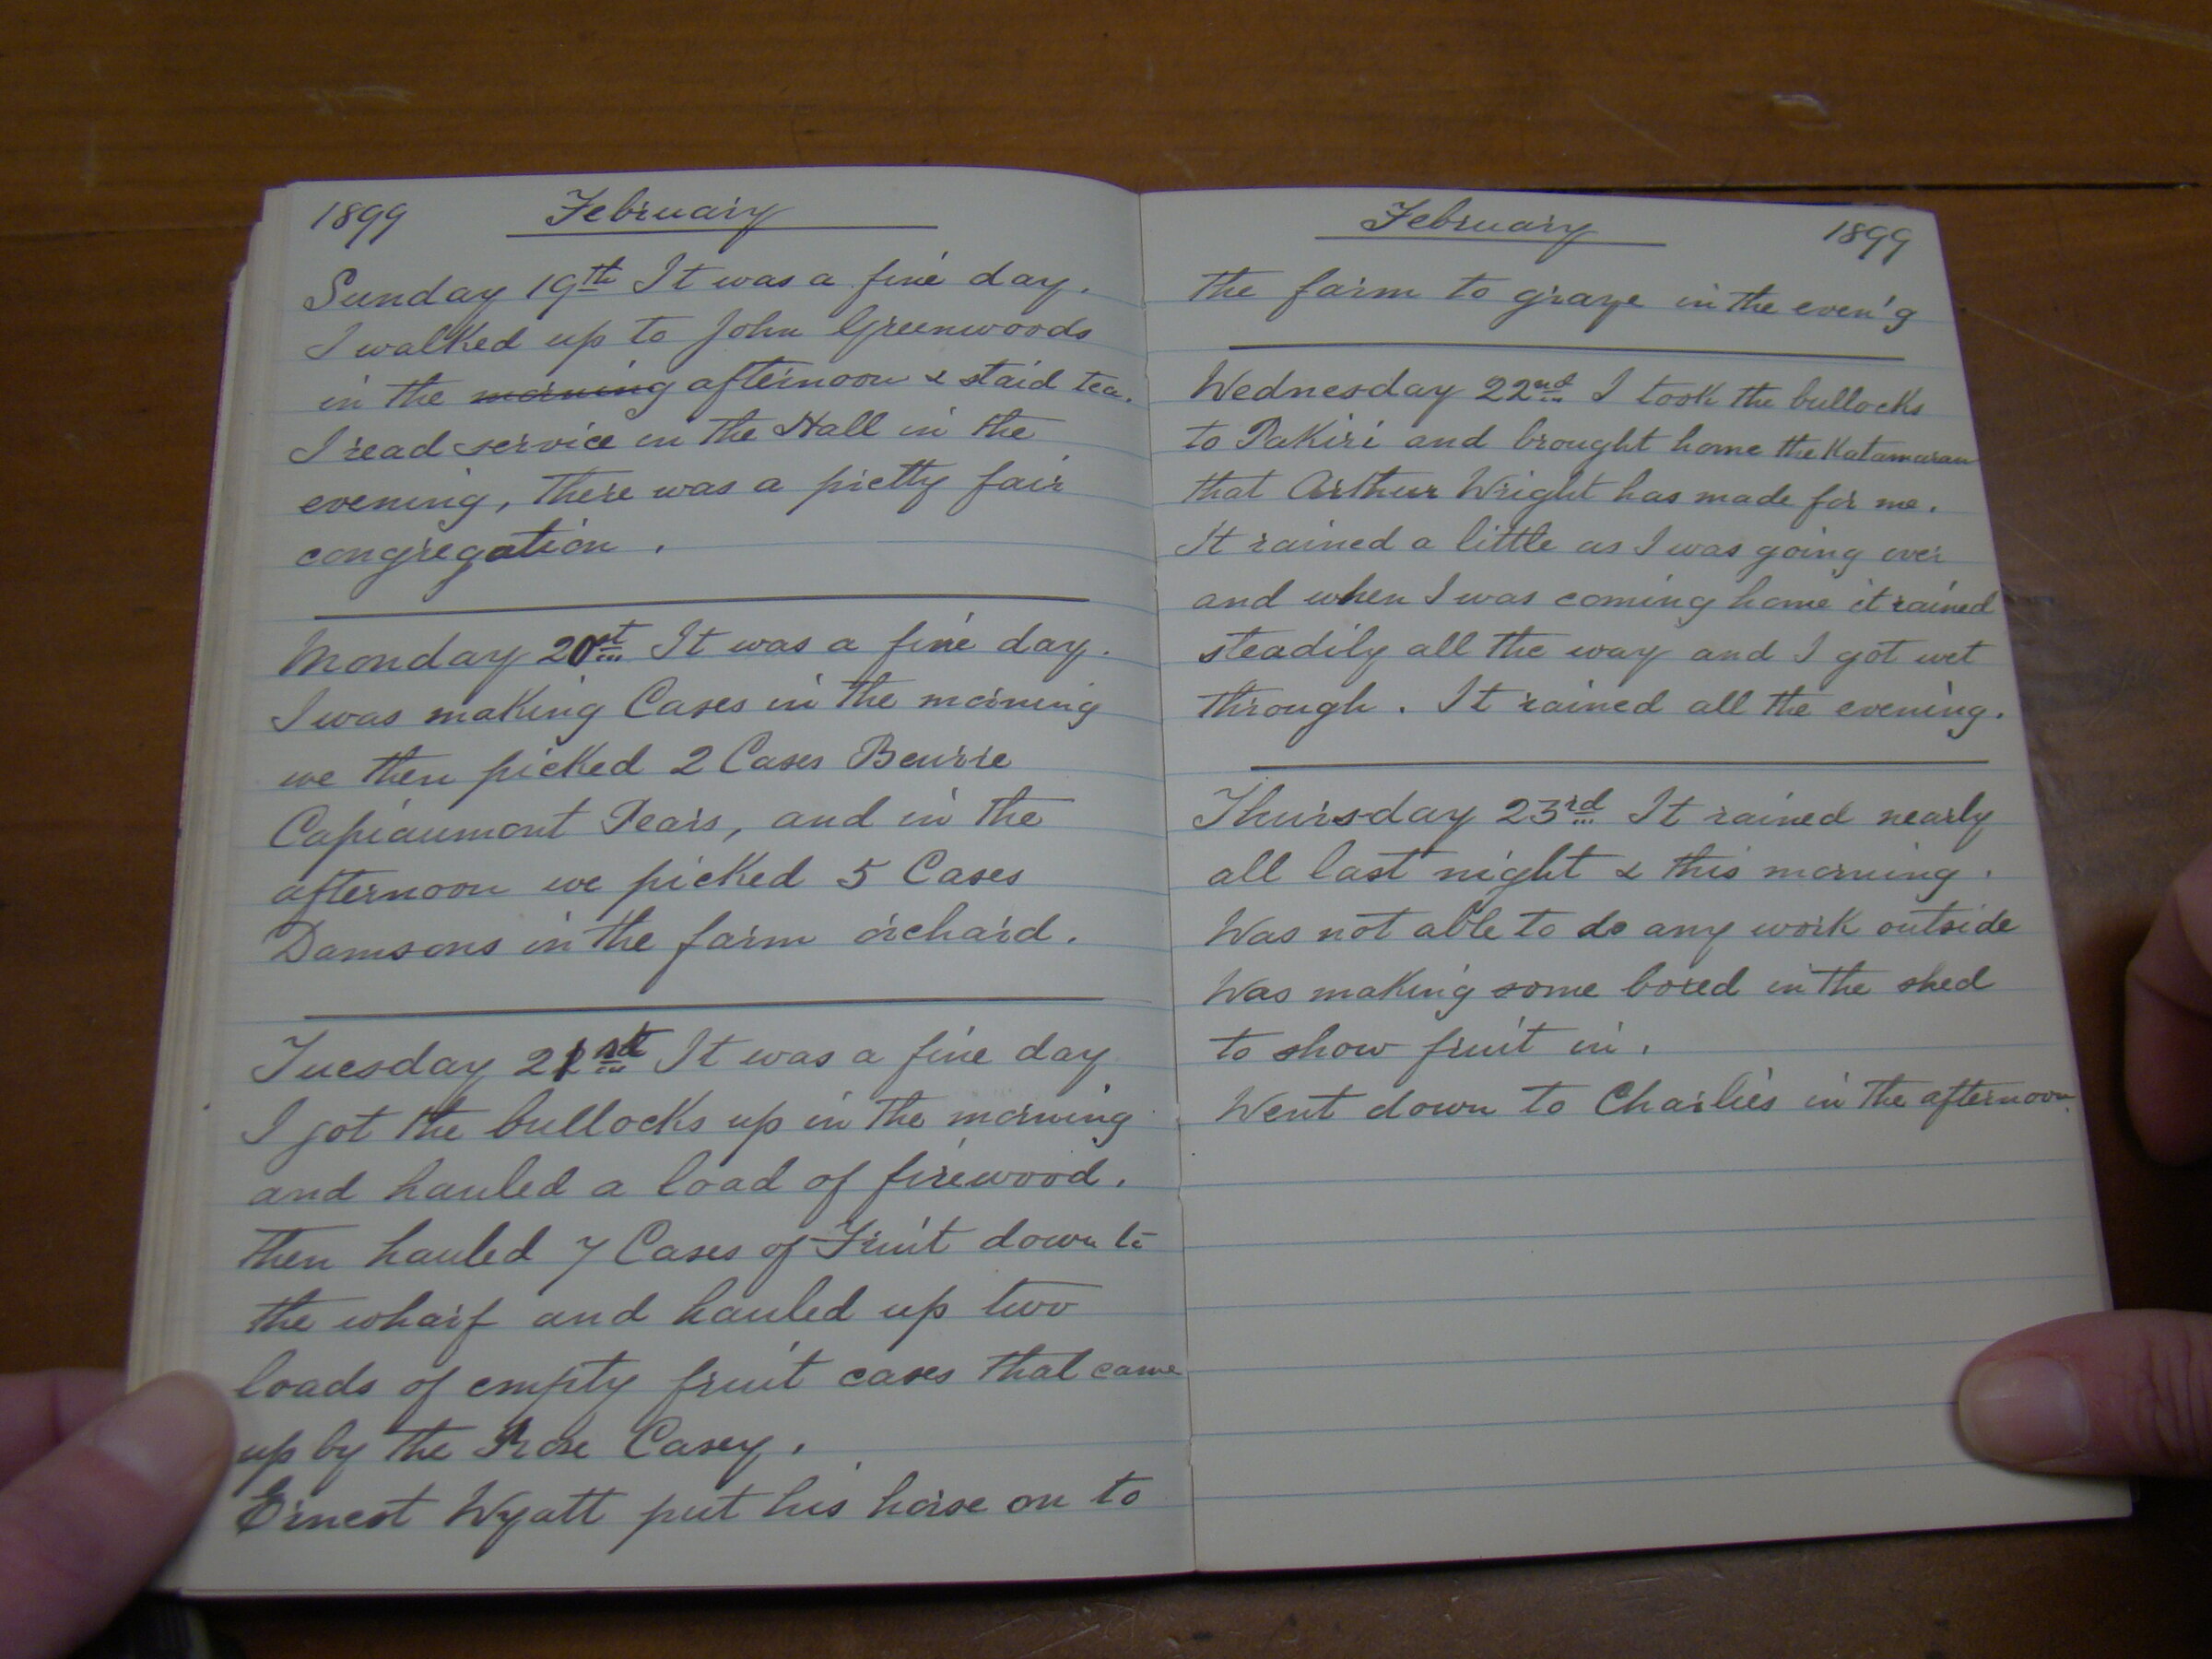 1899 February
Sunday 19th It was a fine day.
I walked up to John Greenwoods
in the morning afternoon & staid tea.
I read service in the Hall in the
evening, there was a pretty fair
congregation.
Monday 20st It was a fine day.
I was making Cases in the morning
we then picked 2 Cases Beurre
Capiaumont Pears, and in the
afternoon we picked 5 Cases
Damsons in the farm orchard.
Tuesday 21st It was a fine day
I got the bullocks up in the morning
and hauled a load of firewood.
Then hauled 7 Cases of Fruit down to
the wharf and hauled up two
loads of empty fruit cases that came
up by the Rose Casey.
Ernest Wyatt put his horse on to
February 1899
the farm to graze in the even'g
Wednesday 22nd I took the bullocks
to Pakiri and brought home the Katamaran
that Arthur Wright has made for me.
It rained a little as I was going over
and when I was coming home it rained
steadily all the way and I got wet
through. It rained all the evening.
Thursday 23rd It rained nearly
all last night & this morning.
Was not able to do any work outside
Was making some boxed in the shed
to show fruit in.
Went down to Charlies in the afternoon.